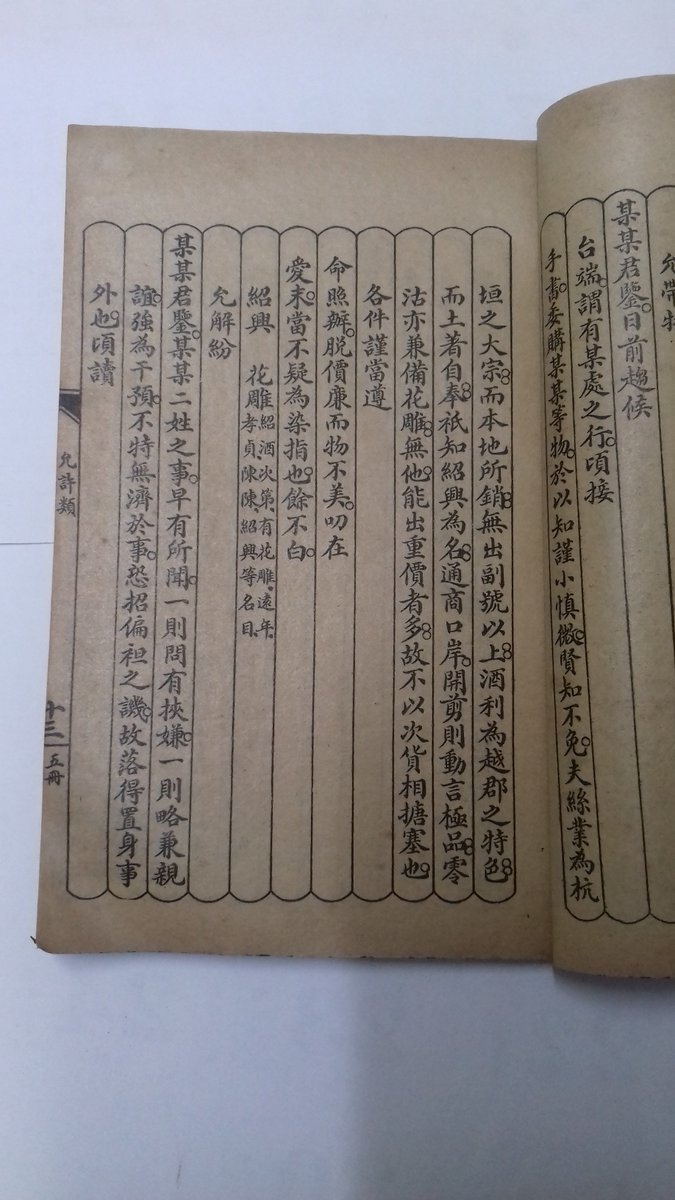 允帶物
某某君鑒。日前趨候
台端。謂有某處之行。頃接
手書。委購某某等物。於以知謹小慎微。賢知不免。夫絲業為杭
垣之大宗。而本地所銷。無出副號以上。酒利為越郡之特色。
而土著自奉。祇知紹興為名。通商口岸。開剪則動言極品。零
沽亦兼備花雕。無他。能出重價者多。故不以次貨相搪塞也。
各件謹當遵
命照辦。脫價廉而物不美。叨在
愛末。當不疑為染指也。餘不白。
紹興 花雕 紹酒次第、有花雕、遠年、孝貞、陳陳、紹興等名目、
允解紛
某某君鑒。某某二姓之事。早有所聞。一則問有挾嫌。一則略兼親
誼。強為干預。不特無濟於事。恐招偏袒之譏。故落得置身事
外也。頃讀
允許類
十三
五冊